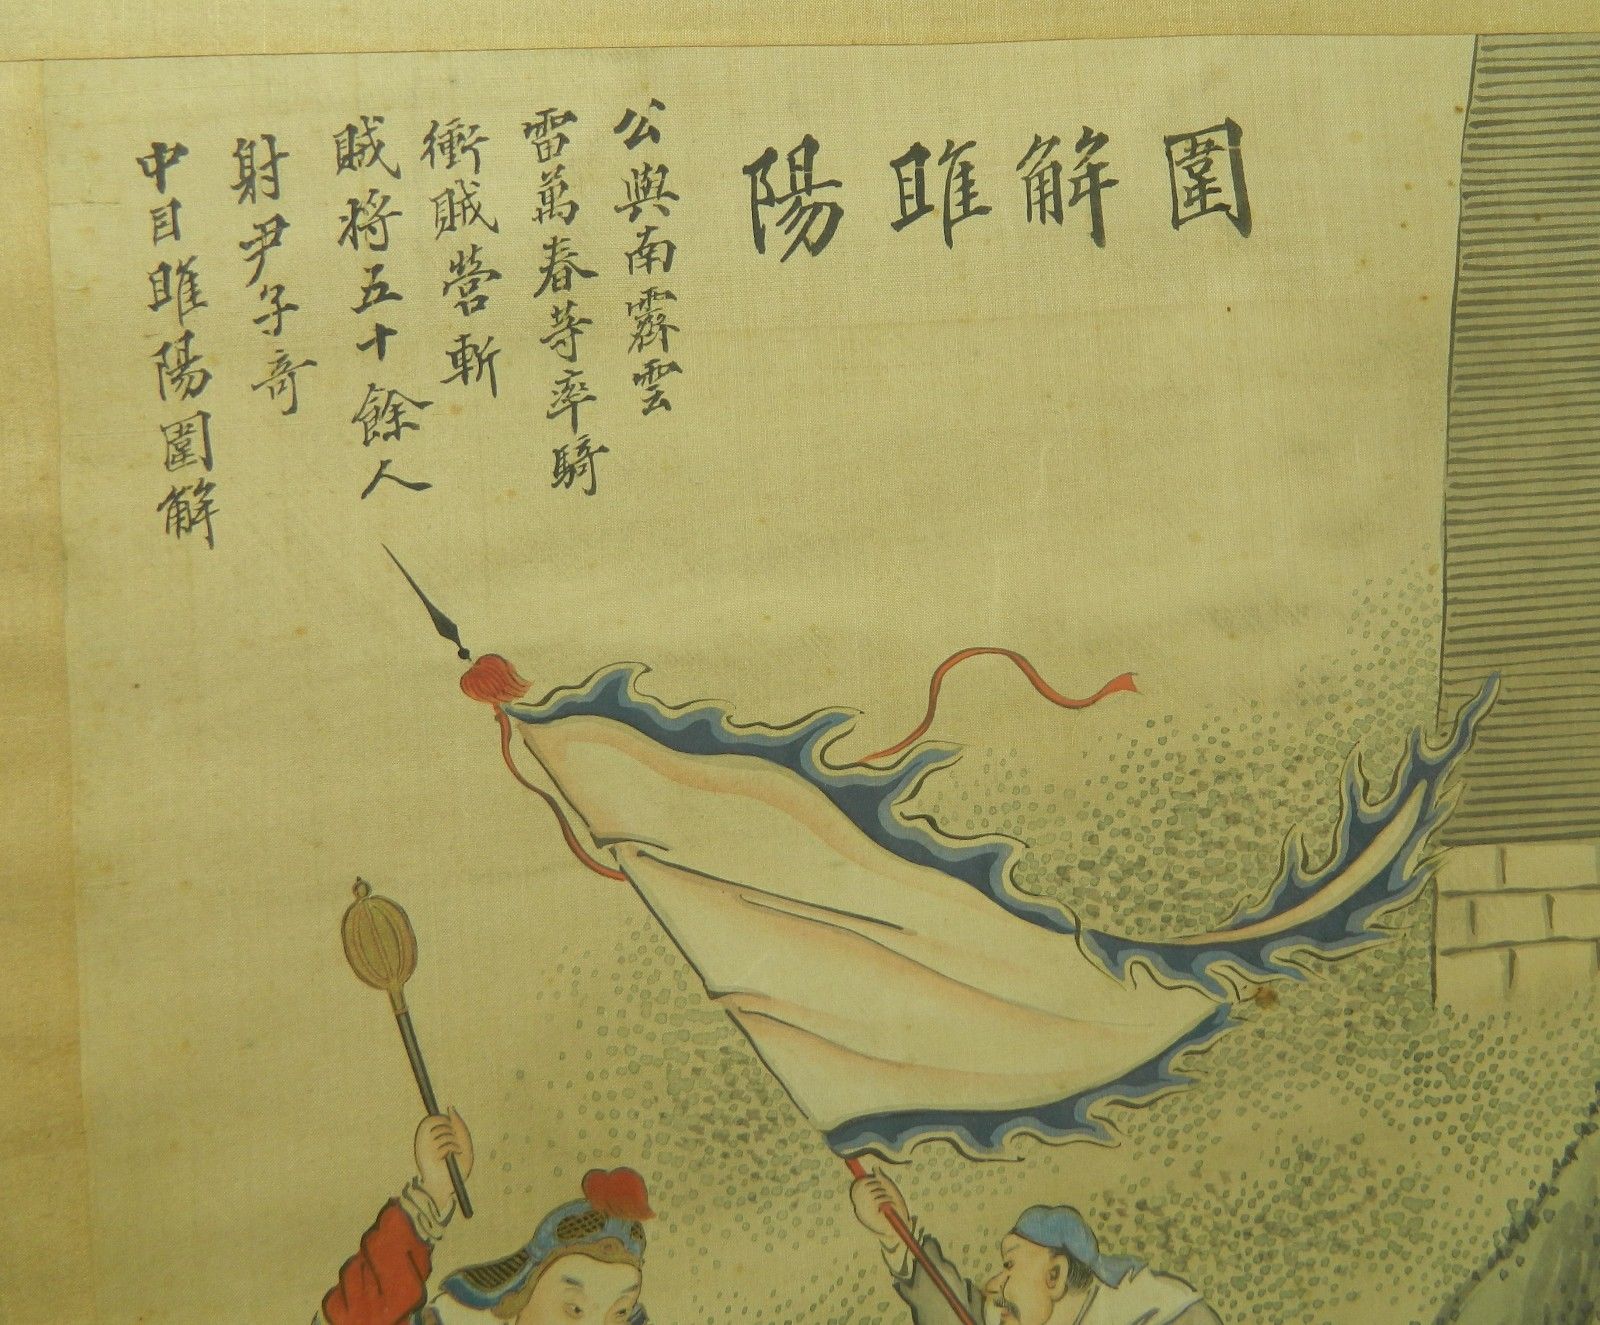 圍解睢陽
公與南霽雲
雷萬春等率騎
衝賊營斬
賊將五十餘人
射尹子奇
中目睢陽圍解